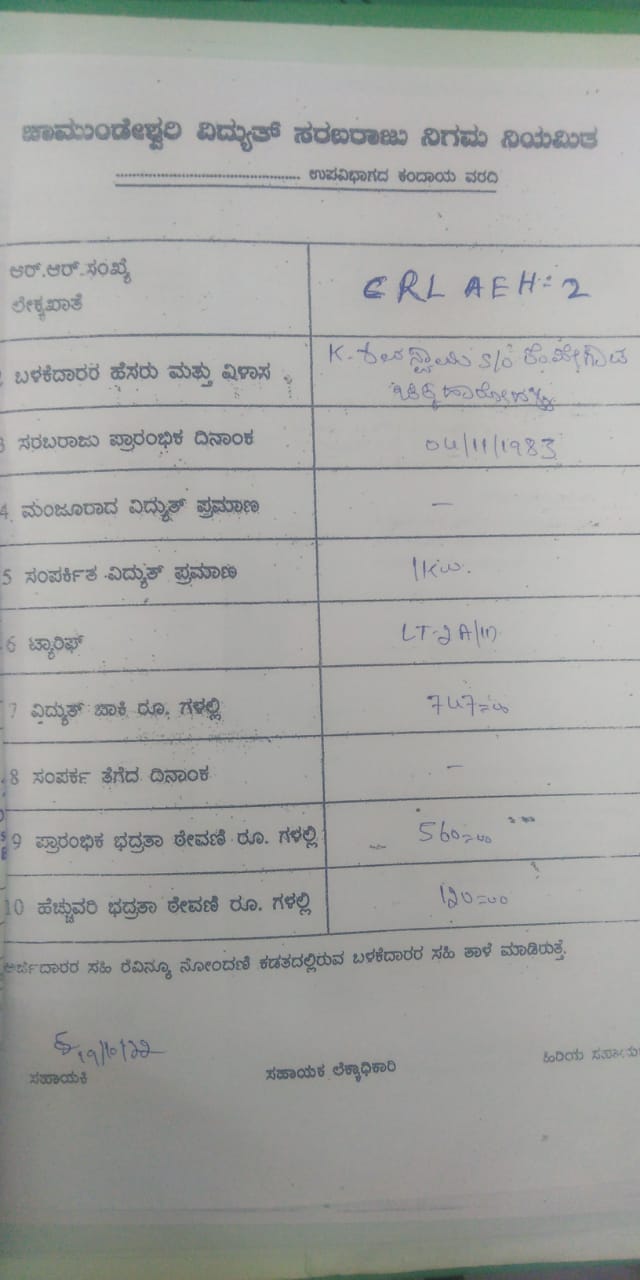 ಚಾಮುಂಡೇಶ್ವರಿ ವಿದ್ಯುತ್ ಸರಬರಾಜು ನಿಗಮ ನಿಯಮಿತ
................................................ ಉಪವಿಭಾಗದ ಕಂದಾಯ ವರದಿ
ಆರ್.ಆರ್.ಸಂಖ್ಯೆ
ಲೇಕ್ಕಖಾತೆ
CRL AEH=2
ಬಳಕೆದಾರರ ಹೆಸರು ಮತ್ತು ವಿಳಾಸ
K. S/o ಕೆಂಪೇಗೌಡ
3 ಸರಬರಾಜು ಪ್ರಾರಂಭಿಕ ದಿನಾಂಕ 04/11/1983
4 ಮಂಜೂರಾದ ವಿದ್ಯುತ್ ಪ್ರಮಾಣ –
5 ಸಂಪರ್ಕಿತ ವಿದ್ಯುತ್ ಪ್ರಮಾಣ 1KW.
6 ಟ್ಯಾರಿಫ್ LT-2A/(ii)
7 ವಿದ್ಯುತ್ ಬಾಕಿ ರೂ. ಗಳಲ್ಲಿ 747=00
8 ಸಂಪರ್ಕ ತೆಗೆದ ದಿನಾಂಕ –
9 ಪ್ರಾರಂಭಿಕ ಭದ್ರತಾ ಠೇವಣಿ ರೂ. ಗಳಲ್ಲಿ 560=00
10 ಹೆಚ್ಚುವರಿ ಭದ್ರತಾ ಠೇವಣಿ ರೂ. ಗಳಲ್ಲಿ 120=00
ಅರ್ಜಿದಾರರ ಸಹಿ ರೆವಿನ್ಯೂ ನೋಂದಣಿ ಕಡತದಲ್ಲಿರುವ ಬಳಕೆದಾರರ ಸಹಿ ತಾಳೆ ಮಾಡಿರುತ್ತೆ.
ಸಹಾಯಕಿ ಸಹಾಯಕ ಲೆಕ್ಕಾಧಿಕಾರಿ ಹಿರಿಯ